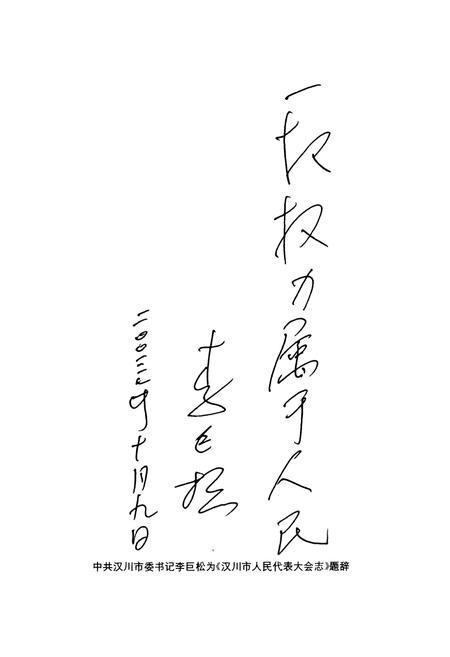 一切权力属于人民
李巨松
二〇〇三年十月九日
中共汉川市委书记李巨松为《汉川市人民代表大会志》题辞